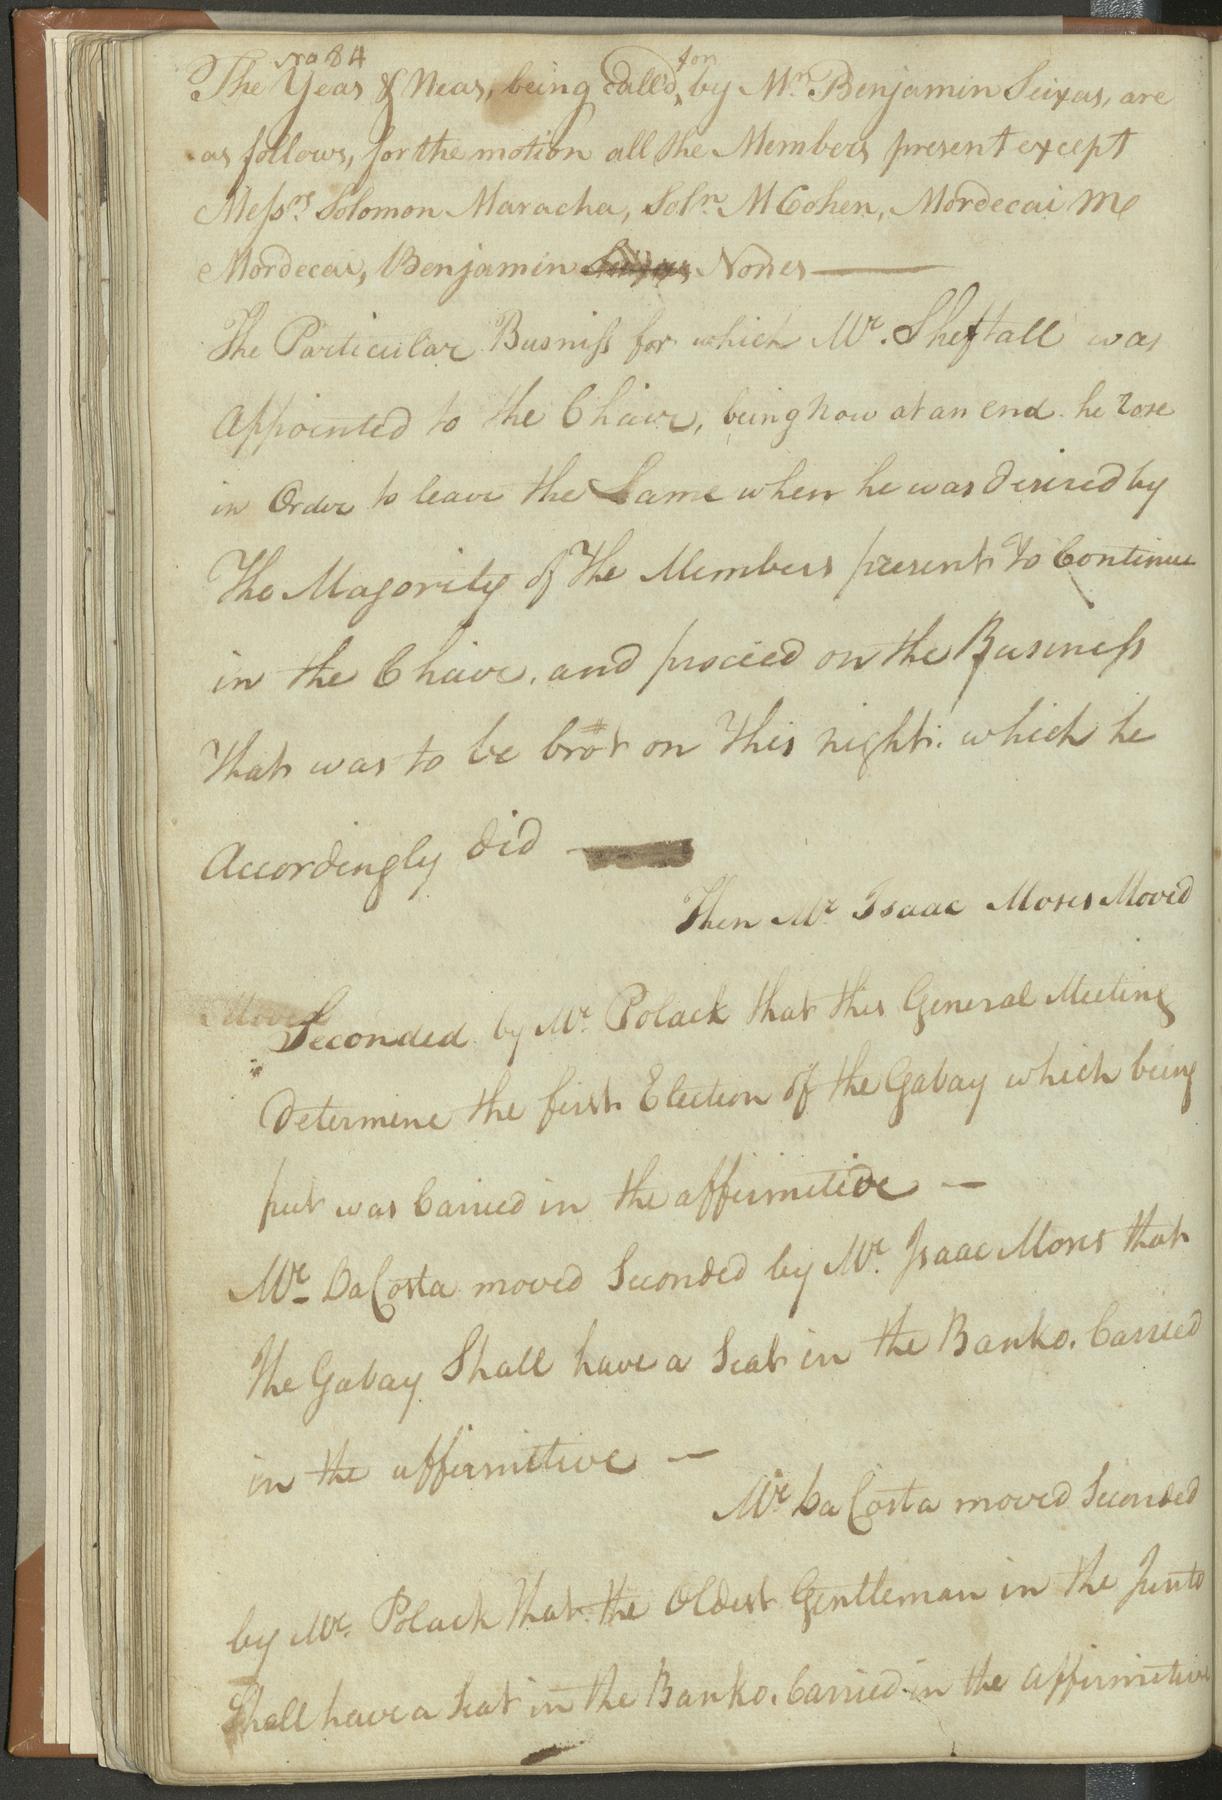 No 84
The Yeas & Neas, being called, for by Mr. Benjamin Seixas, are
as follows, for the motion all the Members present except
Messrs. Solomon Maracha, Soln. M Cohen, Mordecai M
Mordecai, Benjamin Nones
The Particular Busniss for which Mr. Sheftall was
Appointed to the Chair, being now at an end. he rose
in Order to leave the Same when he was desired by
The Majority of the Members present to Continue
in the Chair, and proceed on the Business
That was to be brot on This night. which he
Accordingly did
Then Mr Isaac Moses Moved
Seconded by Mr. Polack that this General Meeting
Determine the first Election of the Gabay which being
put was Carried in the affirmitive —
Mr. DaCosta moved Seconded by Mr. Isaac Moses that
The Gabay Shall have a Seat in the Banko. Carried
in the affirmitive —
Mr. DaCosta moved Seconded
by Mr. Polack that the Oldest Gentleman in the Junto
Shall have a Seat in the Banko. Carried in the affirmitive